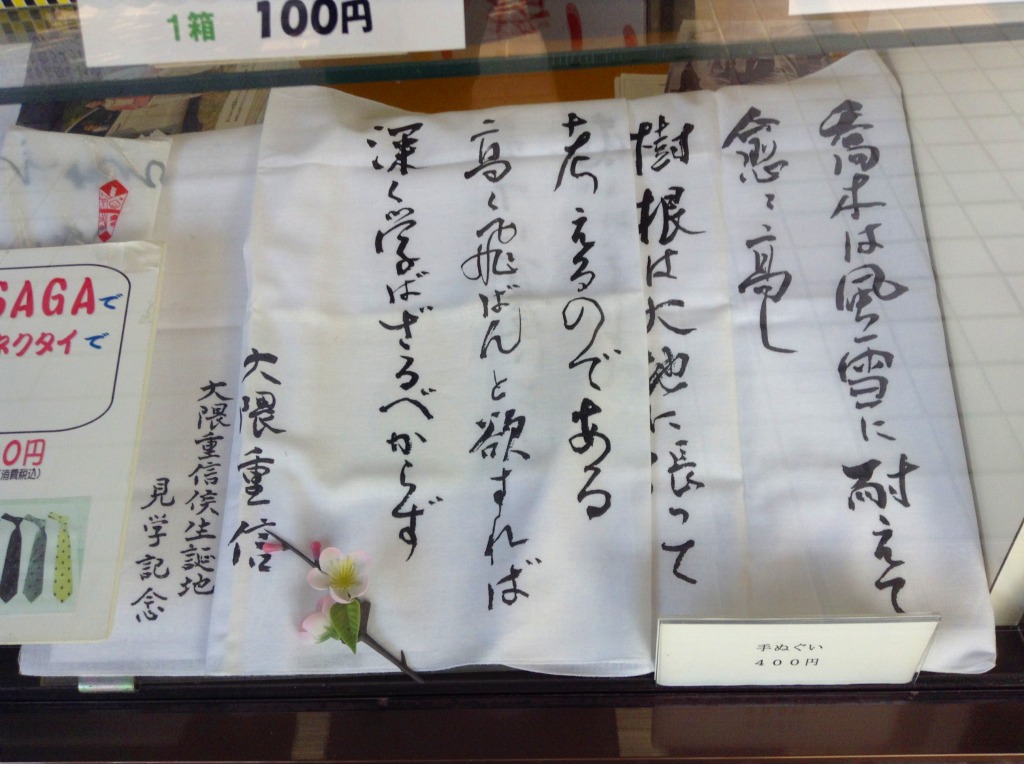 1箱 100円
喬木は風雪に耐えて
愈々高し
樹根は大地に張って
考えるのである
高く飛ばんと欲すれば
深く学ばざるべからず
大隈重信
大隈重信侯生誕地
見学記念
SAGAで
ネクタイで
0円
(消費税込)
手ぬぐい
400円